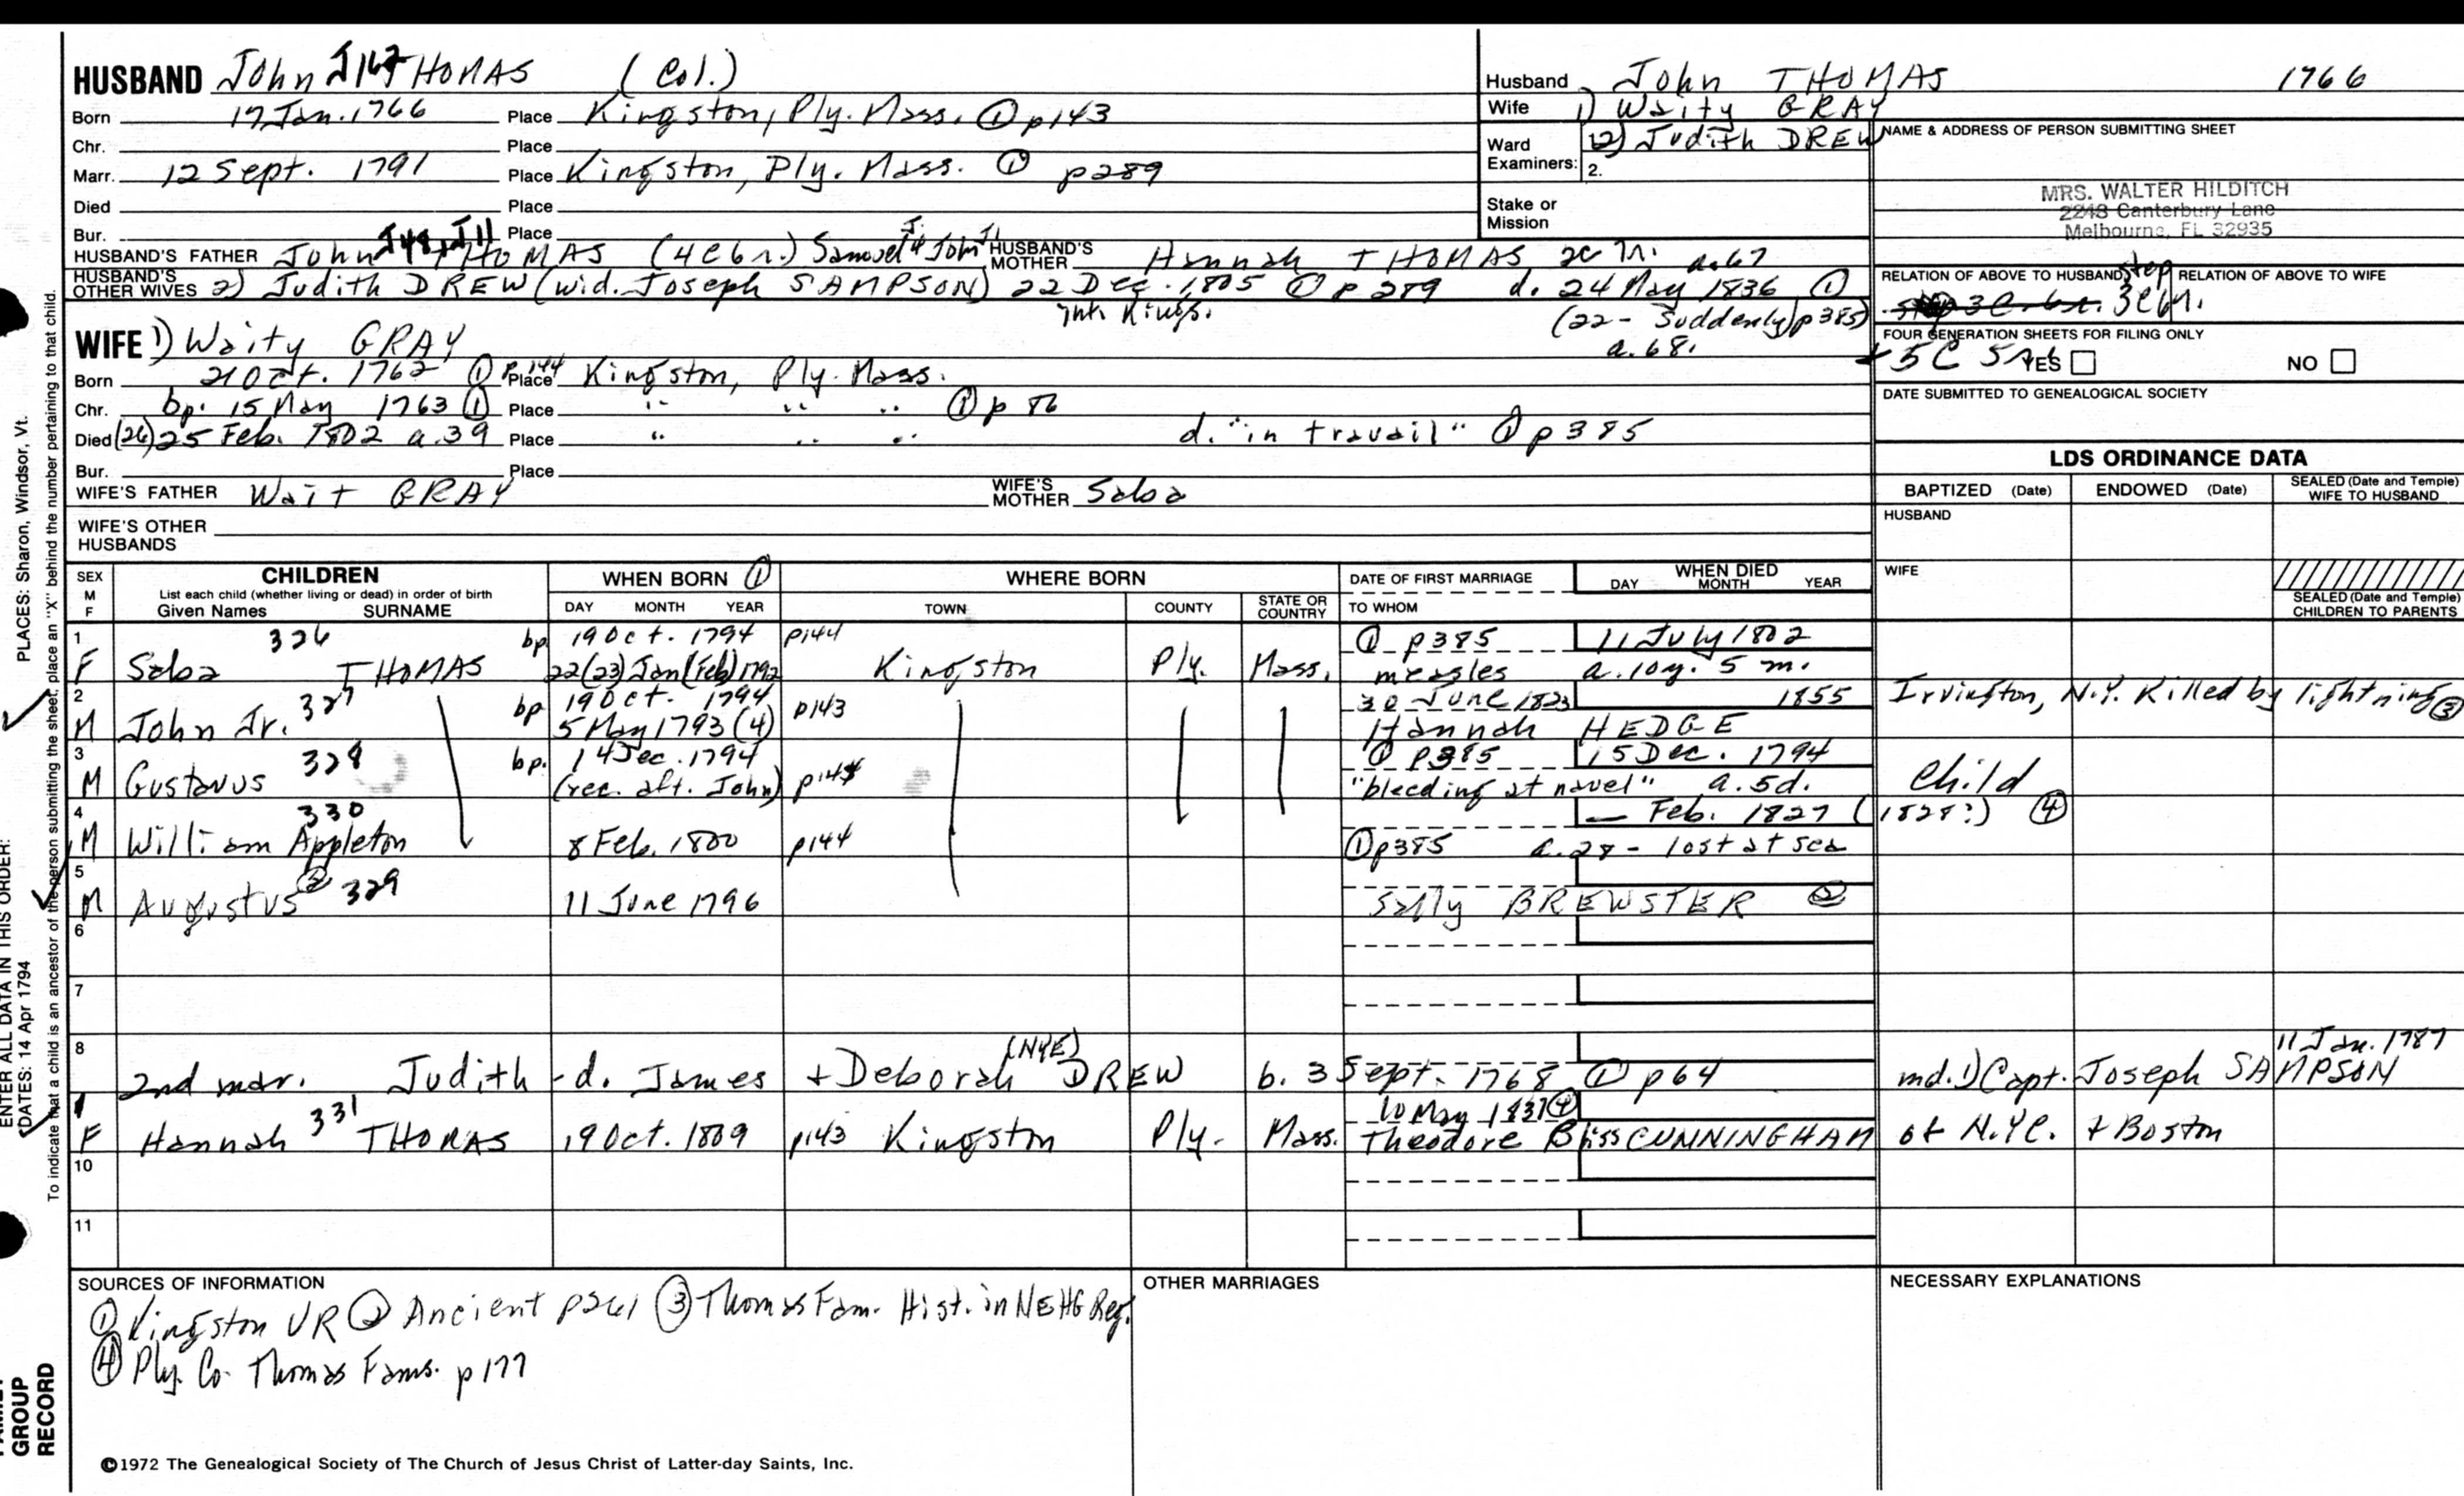 HUSBAND John J167 THOMAS (Col.)
Born 17 Jan. 1766 Place Kingston, Ply. Mass. ① p143
Chr. Place
Marr. 12 Sept. 1791 Place Kingston, Ply. Mass. ① p289
Died Place
Bur. Place
HUSBAND'S FATHER John J48, J11 THOMAS (4C6r.) Samuel J4 John J1 HUSBAND'S MOTHER Hannah THOMAS 2C a.67
HUSBAND'S OTHER WIVES 2) Judith DREW (wid. Joseph SAMPSON) 22 Dec. 1805 ① p289 d. 24 May 1836 ①
int. Kings. (22 - Suddenly) p385)
a.68.
WIFE 1) Waity GRAY
Born 21 Oct. 1762 ① p.144 Place Kingston, Ply. Mass.
Chr. bp. 15 May 1763 ① Place " " " ① p 86
Died (26) 25 Feb. 1802 a.39 Place " " " d. "in travail" ① p385
Bur. Place
WIFE'S FATHER Wait GRAY WIFE'S MOTHER Saba
WIFE'S OTHER HUSBANDS
Husband John THOMAS 1766
Wife 1) Waity GRAY
Ward Examiners: 1. 2) Judith DREW
2.
Stake or Mission
NAME & ADDRESS OF PERSON SUBMITTING SHEET
MRS. WALTER HILDITCH
2248 Canterbury Lane
Melbourne, FL 32935
RELATION OF ABOVE TO HUSBAND step 3C RELATION OF ABOVE TO WIFE
FOUR GENERATION SHEETS FOR FILING ONLY
5C YES NO
DATE SUBMITTED TO GENEALOGICAL SOCIETY
LDS ORDINANCE DATA
BAPTIZED (Date) ENDOWED (Date) SEALED (Date and Temple) WIFE TO HUSBAND
HUSBAND
WIFE
SEALED (Date and Temple) CHILDREN TO PARENTS
SEX M F CHILDREN List each child (whether living or dead) in order of birth Given Names SURNAME
WHEN BORN ① DAY MONTH YEAR
WHERE BORN TOWN COUNTY STATE OR COUNTRY
DATE OF FIRST MARRIAGE TO WHOM
WHEN DIED DAY MONTH YEAR
1 326 bp 19 Oct. 1794 p144 ① p385 11 July 1802
F Saba THOMAS 22(23) Jan(Feb) 1792 Kingston Ply. Mass. measles a. 10y. 5 m.
2 327 bp 19 Oct. 1794 p143 30 June 1823 1855 Irvington, N.Y. Killed by lightning ③
M John Jr. 5 May 1793 (4) Hannah HEDGE
3 328 bp. 14 Dec. 1794 ① p385 15 Dec. 1794
M Gustavus (rec. aft. John) p143 "bleeding at navel" a.5d. Child
4 330 — Feb. 1827 (1828?) ④
M William Appleton 8 Feb. 1800 p144 ① p385 a.28 - lost at sea
5
M Augustus ② 329 11 June 1796 Sally BREWSTER ②
6
7
8 2nd mar. Judith - d. James + Deborah (NYE) DREW b. 3 Sept. 1768 ① p64 md. 1) Capt. Joseph SAMPSON 11 Jan. 1787
331 10 May 1837 ④
F Hannah THOMAS 19 Oct. 1809 p143 Kingston Ply. Mass. Theodore Bliss CUNNINGHAM of N.YC. + Boston
10
11
SOURCES OF INFORMATION
① Kingston VR ② Ancient p261 ③ Thomas Fam. Hist. in NEHG Reg.
④ Ply. Co. Thomas Fams. p177
OTHER MARRIAGES
NECESSARY EXPLANATIONS
©1972 The Genealogical Society of The Church of Jesus Christ of Latter-day Saints, Inc.
PLACES: Sharon, Windsor, Vt.
To indicate that a child is an ancestor of the person submitting the sheet, place an "X" behind the number pertaining to that child.
ENTER ALL DATA IN THIS ORDER:
DATES: 14 Apr 1794
GROUP
RECORD